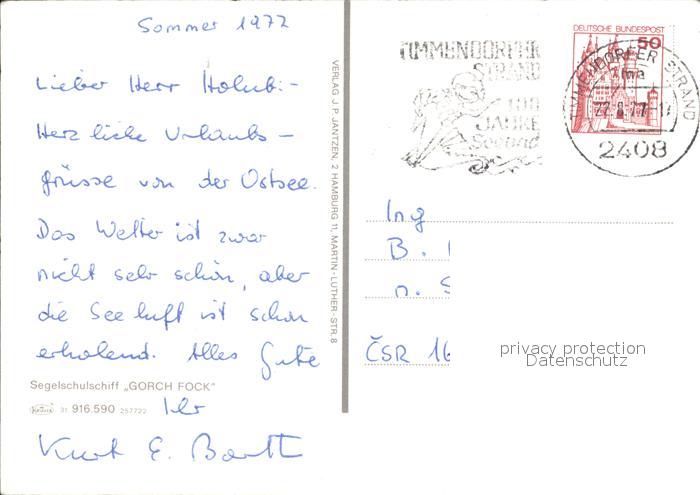 Sommer 1977
Lieber Herr Holub:-
Herzliche Urlaubs-
grüsse von der Ostsee.
Das Wetter ist zwar
nicht sehr schön, aber
die Seeluft ist schon
erholend. Alles Gute
Segelschulschiff „GORCH FOCK"
Krüger 31 916.590 257722
Ihr
Kurt E. Barth
VERLAG J. P. JANTZEN, 2 HAMBURG 11, MARTIN-LUTHER-STR. 8
TIMMENDORFER
STRAND
100
JAHRE
Seebad
DEUTSCHE BUNDESPOST
50
TIMMENDORFER STRAND
22.8.77-1
2408
Ing
B.
n. S
ČSR 16
privacy protection
Datenschutz